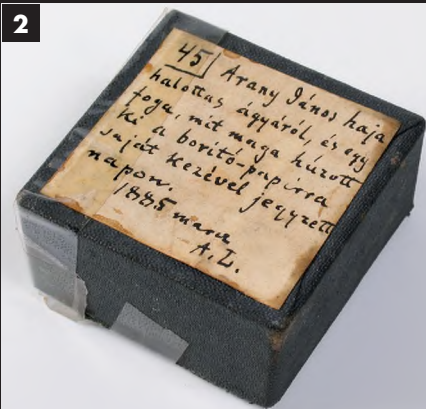 2
45 Arany János haja
halottas ágyáról, és egy
foga, mit maga húzott
ki a borító-papirra
saját kezével jegyzett
napon.
1885 mara
A. L.